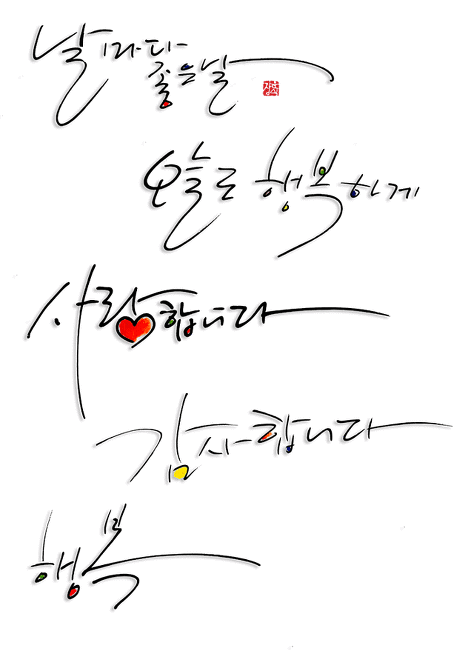 날마다 좋은날
오늘도 행복하게
사랑합니다
감사합니다
행복